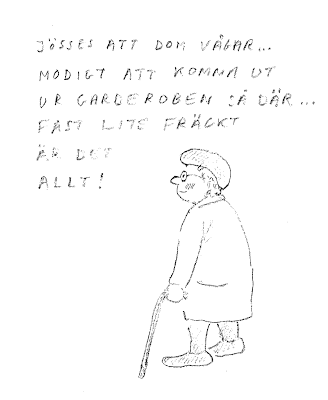 JÖSSES ATT DOM VÅGAR...
MODIGT ATT KOMMA UT
UR GARDEROBEN SÅ DÄR...
FAST LITE FRÄCKT
ÄR DET
ALLT!